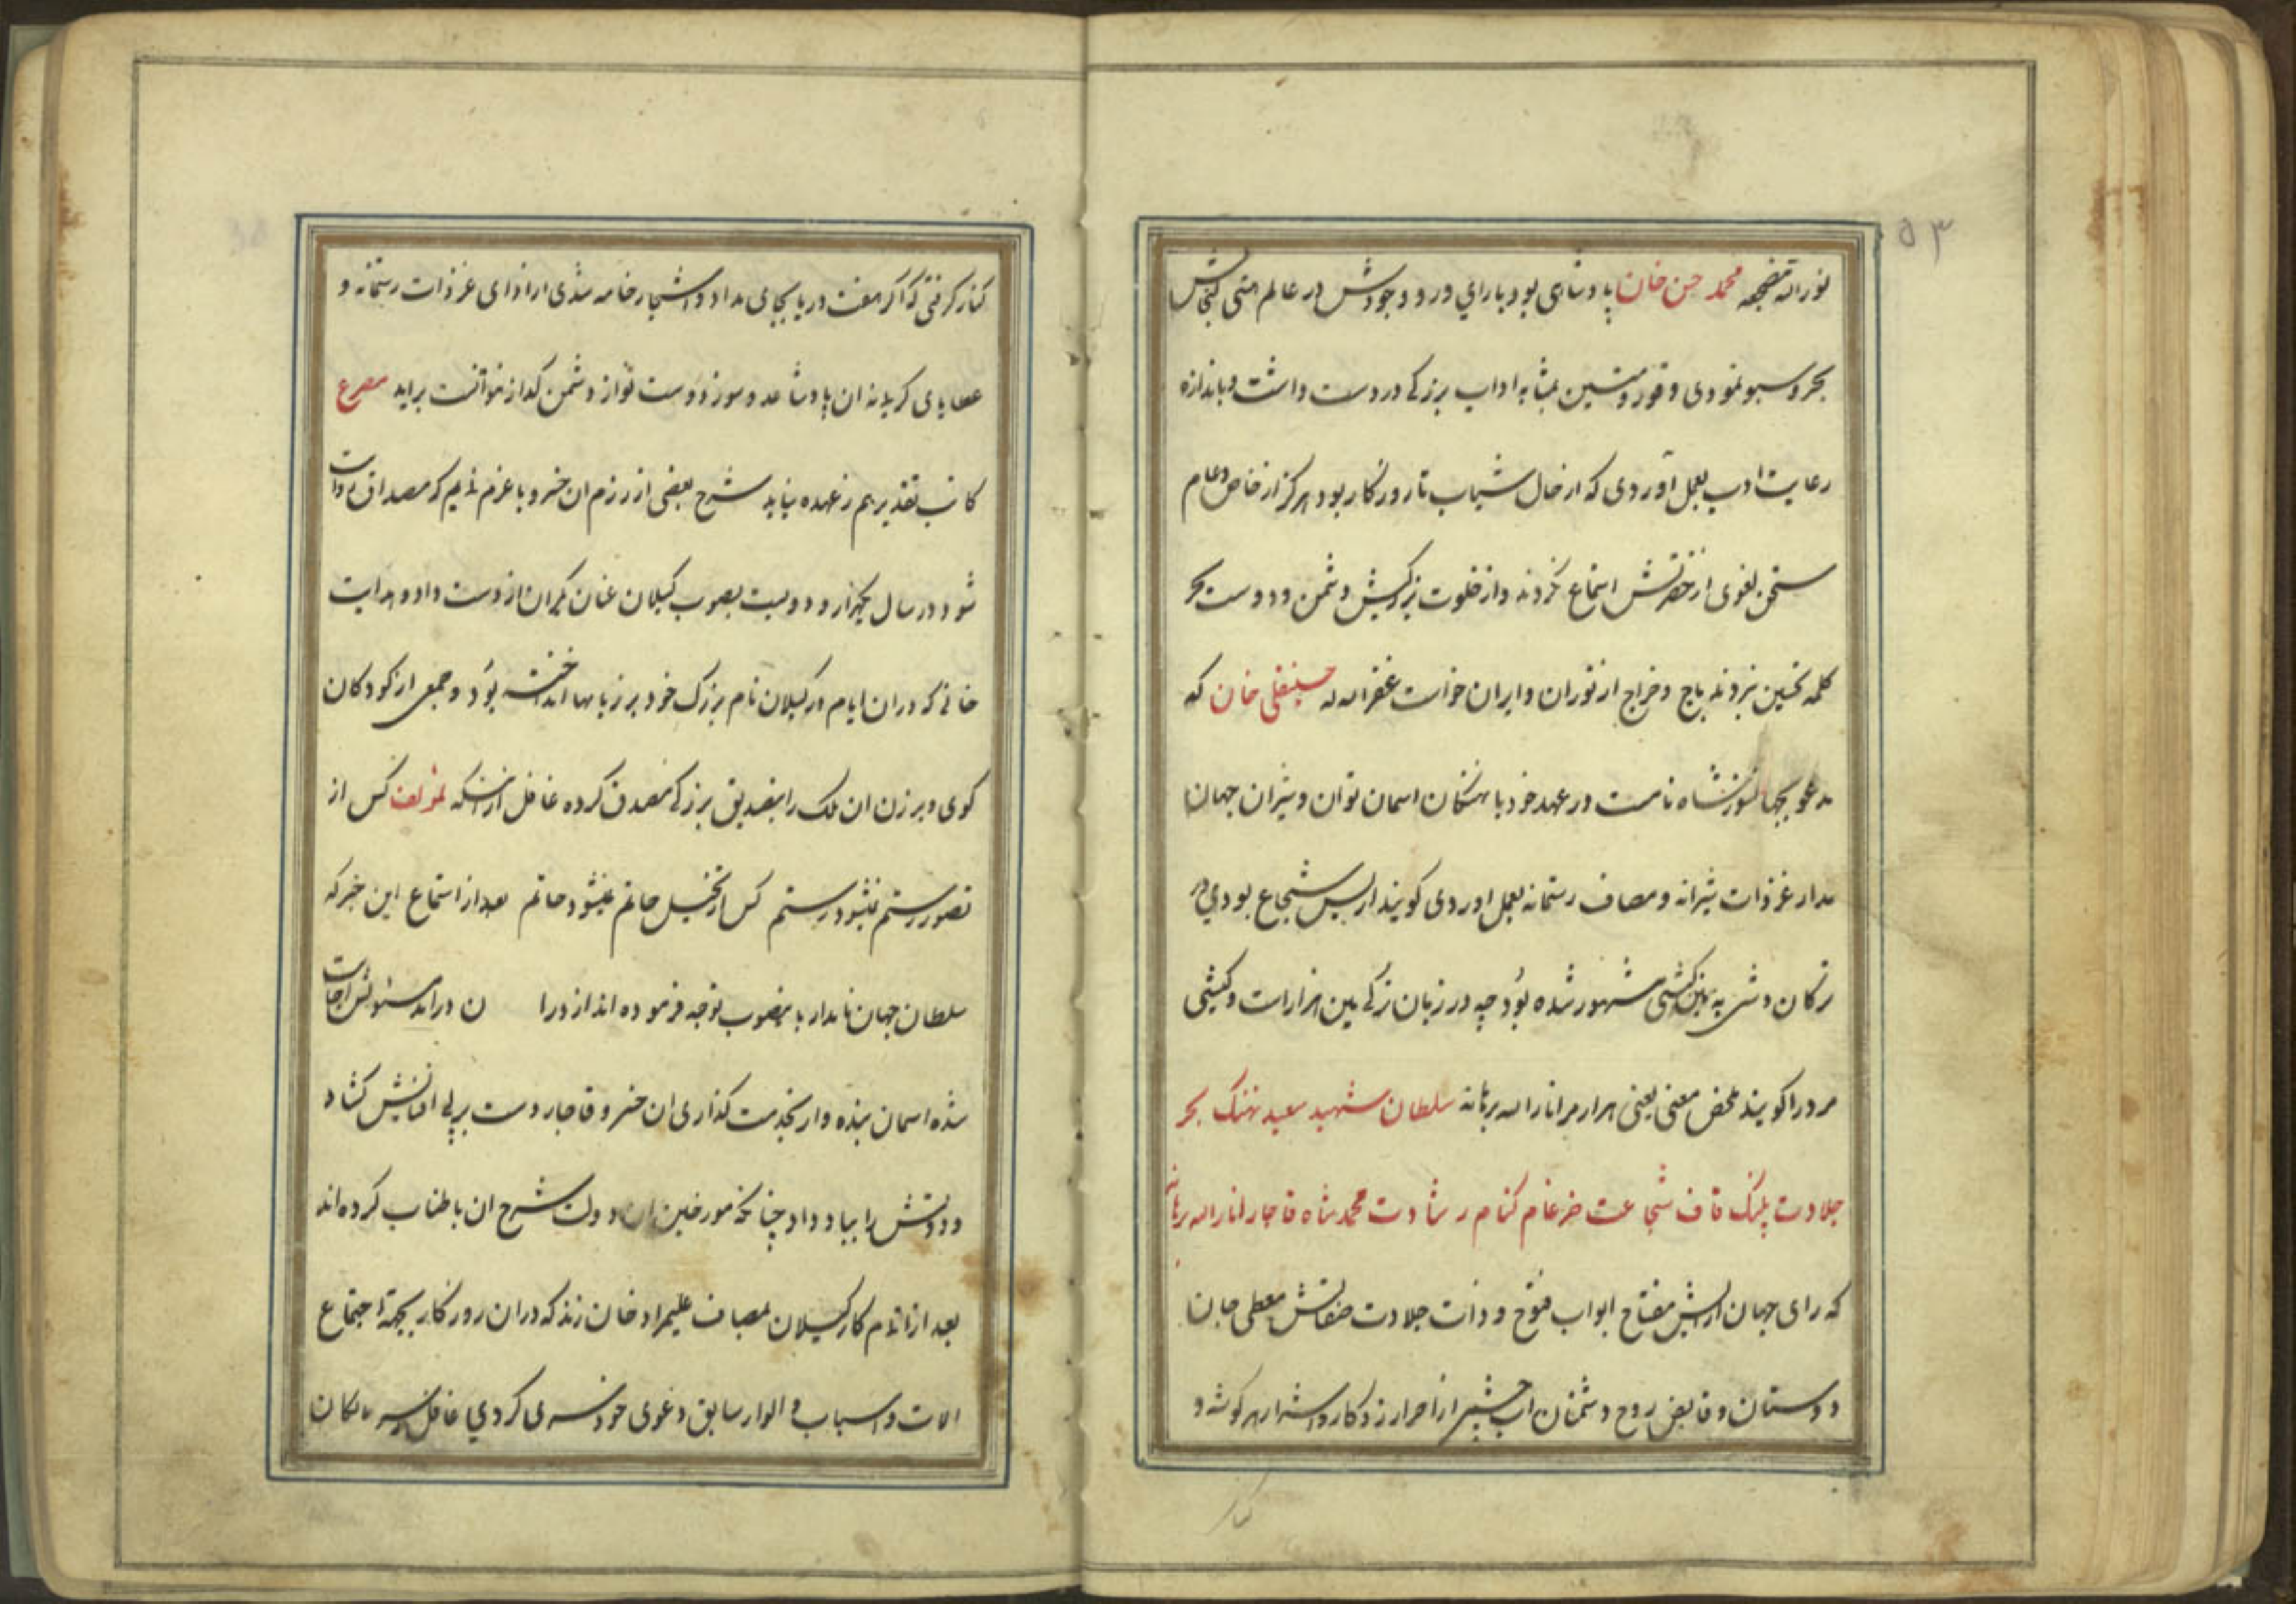 ۵۳
نورالله مضجعه محمد حسن خان پادشاهی بود با رای و رو وجودش در عالم متنی کنجایش
بحر و سبو نمودی وقور و متین بمثابه اداب بزرکی در دست داشت و باندازه
رعایت ادب بعمل آوردی که از خال شباب تا روزکار بود هرکز از خاص و عام
سخن لغوی از حضرتش استماع نکردند و از خلوت بزرکیش دشمن و دوست بجز
کلمه تحسین نبردند باج و خراج از توران و ایران خواست غفرالله له حسینقلی خان که
مدعو بجهانسوز شاه نامست در عهد خود با نهنکان اسمان توان و شیران جهان
مدار غزوات شیرانه و مصاف رستمانه بعمل اوردی کویند از بس شجاع بودی در
ترکان دشت به مین کشی مشهور شده بود چه در زبان ترکی مین هزار است و کیشی
مرد را کویند محض معنی یعنی هزار مرد انارالله برهانه سلطان شهید سعید نهنک بحر
جلادت پلنک قاف شجاعت ضرغام کنام رشادت محمد شاه قاجار انارالله برهانه
که رای جهان ارایش مفتاح ابواب فتوح و ذات جلادت صفاتش معطی جان
دوستان و قابض روح دشمنان اب شمشیر از احرار زدکار و اشرار هر کوشه و
کنار
کنار کرفتی که اکر هفت دریا بجای مداد و اشجار خامه شدی از ادای غزوات رستمانه و
عطایای کریمانه ان پادشاه عدو سوز و دوست نواز دشمن کداز نتوانست براید مصرع
کاتب تقدیر هم ز عهده نیاید شرح بعضی از رزم ان خسرو با عزم نمایم که مصداق مدعات
شود در سال یکهزار و دویست بصوب کیلان عنان یکران از دست داد و هدایت
خانی که در ان ایام در کیلان نام بزرک خود بر زبانها انداخته بود و جمعی از کودکان
کوی و برزن ان ملک را بتصدیق بزرکی مصدق کرده غافل از انکه لمؤلفه کس از
تصور رستم نشود رستم کس از تخیل حاتم نمیشود حاتم بعد از استماع این خبر که
سلطان جهان نامدار باینصوب توجه فرموده اند از ورا ن در امد مسئولش اجابت
شده اسمان بنده وار بخدمت کذاری ان خسرو قاجار دست بر پی افنایش کشاد
و دولتش را بباد داد چنانکه مورخین ان دولت شرح ان باطناب کرده اند
بعد از اتمام کار کیلان بمصاف علیمراد خان زند که در ان روزکار بجهة اجتماع
الات و اسباب و الوار سابق دعوی خود سری کردی غافل